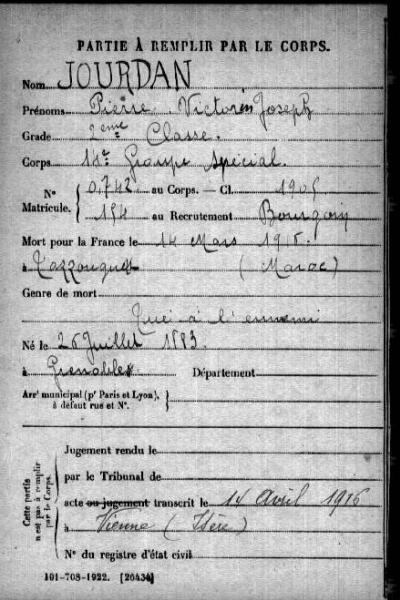 PARTIE À REMPLIR PAR LE CORPS.
Nom JOURDAN
Prénoms Pierre Victorin Joseph
Grade 2ème Classe.
Corps 14e Groupe spécial.
N° Matricule. { 0.742 au Corps. — Cl. 1905
154 au Recrutement Bourgoin
Mort pour la France le 14 Mars 1916.
à (Maroc)
Genre de mort
Tué à l'ennemi
Né le 26 Juillet 1883.
à Grenoble Département
Arrt municipal (pr Paris et Lyon),
à défaut rue et N°.
Cette partie n'est pas à remplir par le Corps.
Jugement rendu le
par le Tribunal de
acte ou jugement transcrit le 14 Avril 1916
à Vienne (Isère)
N° du registre d'état civil
101-708-1922. [26434]